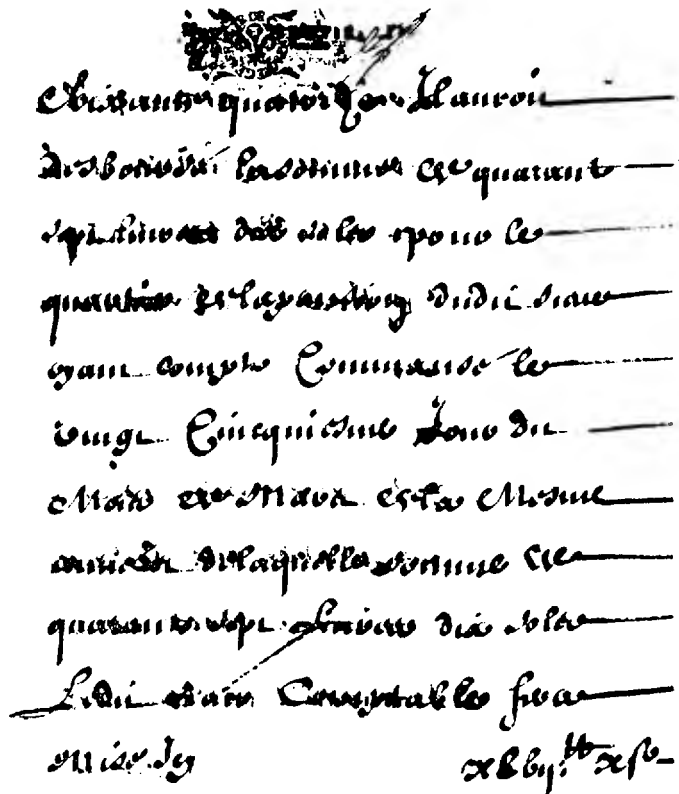 Soixante quatorze Il auroit
desboursé la somme de quarante
sept livres dix solz pour le
quartier de la pantion dudit
ayant compte Commancé le
vingt Cincquiesme Jour du
Mois de Mars de la Mesme
année de laquelle somme de
quarante sept livres dix solz
Ledit Comptable fera
mise Icy xlvij tt x s